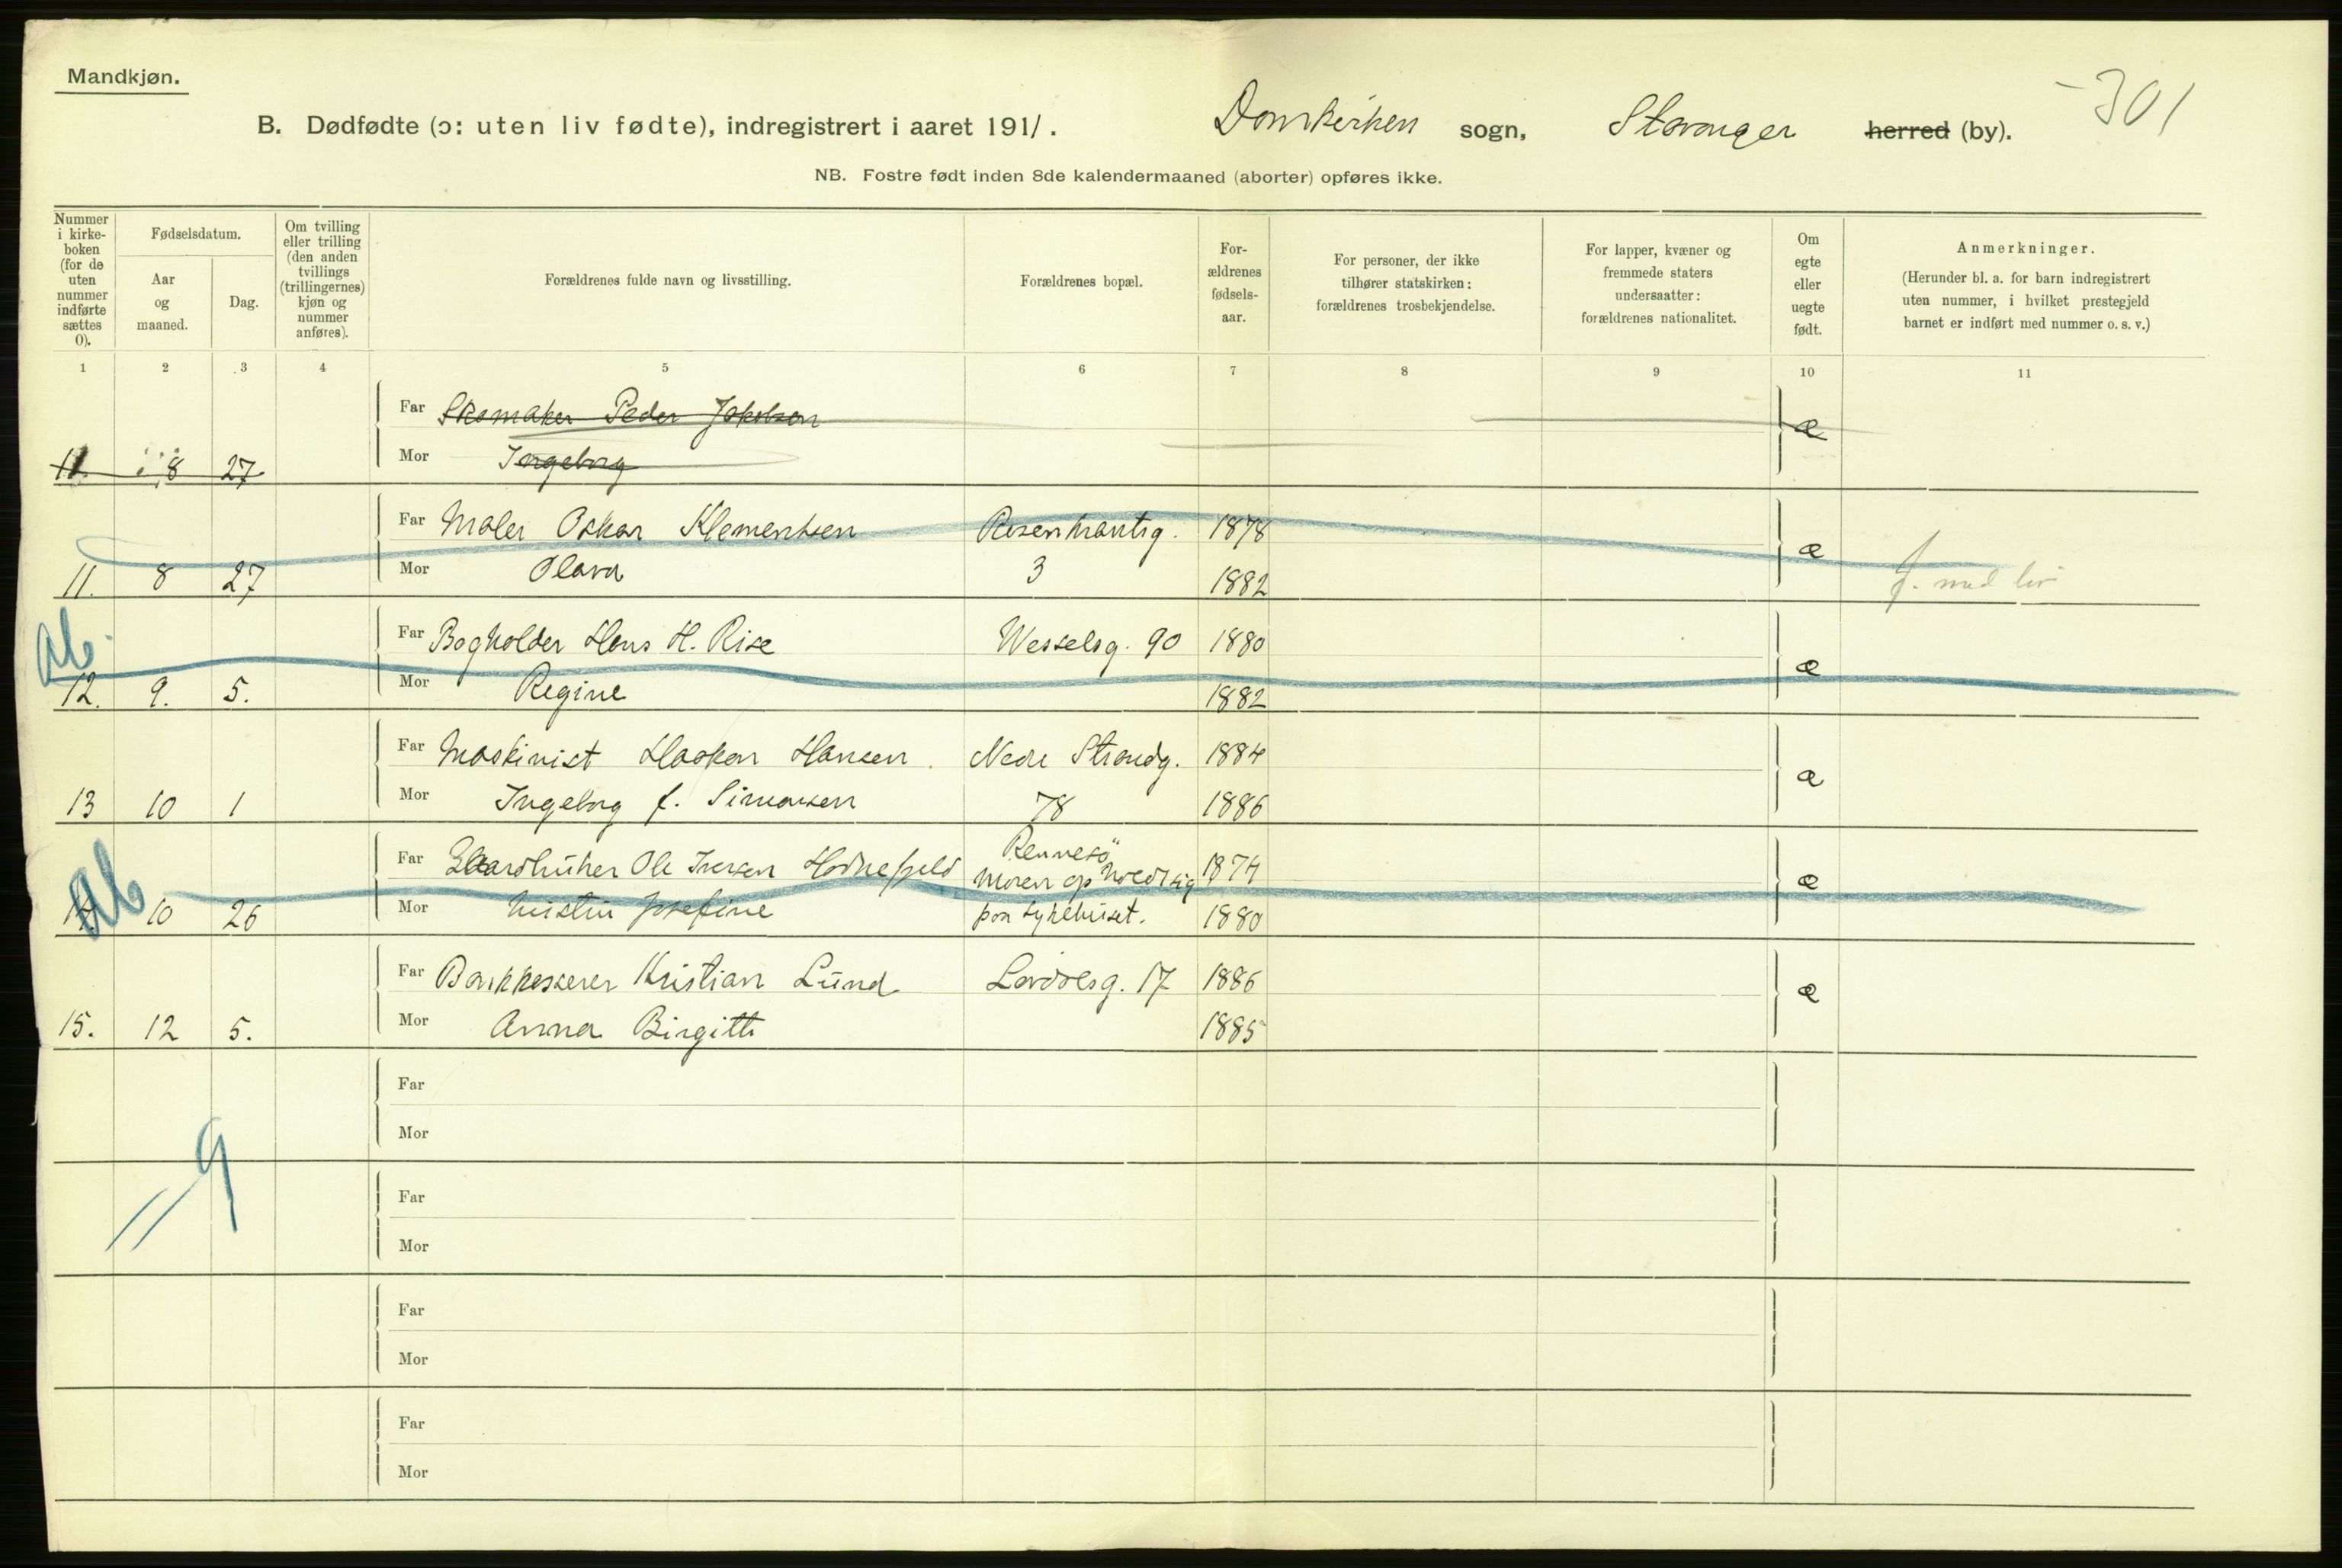 Mandkjøn.
301
B. Dødfødte (ɔ: uten liv fødte), indregistrert i aaret 1911. Domkirken sogn, Stavanger herred (by).
NB. Fostre født inden 8de kalendermaaned (aborter) opføres ikke.
Nummer i kirke-boken (for de uten nummer indførte sættes 0).
Fødselsdatum.
Aar og maaned.
Dag.
Om tvilling eller trilling (den anden tvillings (trillingernes) kjøn og nummer anføres).
Forældrenes fulde navn og livsstilling.
Forældrenes bopæl.
For-ældrenes fødsels-aar.
For personer, der ikke tilhører statskirken: forældrenes trosbekjendelse.
For lapper, kvæner og fremmede staters undersaatter: forældrenes nationalitet.
Om egte eller uegte født.
Anmerkninger.
(Herunder bl. a. for barn indregistrert uten nummer, i hvilket prestegjeld barnet er indført med nummer o. s. v.)
1 2 3 4 5 6 7 8 9 10 11
Far Skomaker Peder Jakobsen æ
11. 8 27 Mor Ingeborg
Far Maler Oskar Klementsen Rosenkrantsg. 1878 æ
11. 8 27 Mor Olava 3 1882 f. med liv
Ab.
Far Bogholder Hans H. Rise Wesselsg. 90 1880 æ
12. 9. 5. Mor Regine 1882
Far Maskinist Haakon Hansen. Nedre Strandg. 1884 æ
13 10 1 Mor Ingeborg f. Simonsen 78 1886
Ab
Far Gaardbruker Ole Iversen Hodnefjeld Rennesö moren opholdt sig 1874 æ
14. 10 26 Mor Kristin Josefine paa sykehuset. 1880
Far Bankkasserer Kristian Lund Lövdalsg. 17 1886 æ
15. 12 5. Mor Anna Birgitte 1885
Far
Mor
9
Far
Mor
Far
Mor
Far
Mor